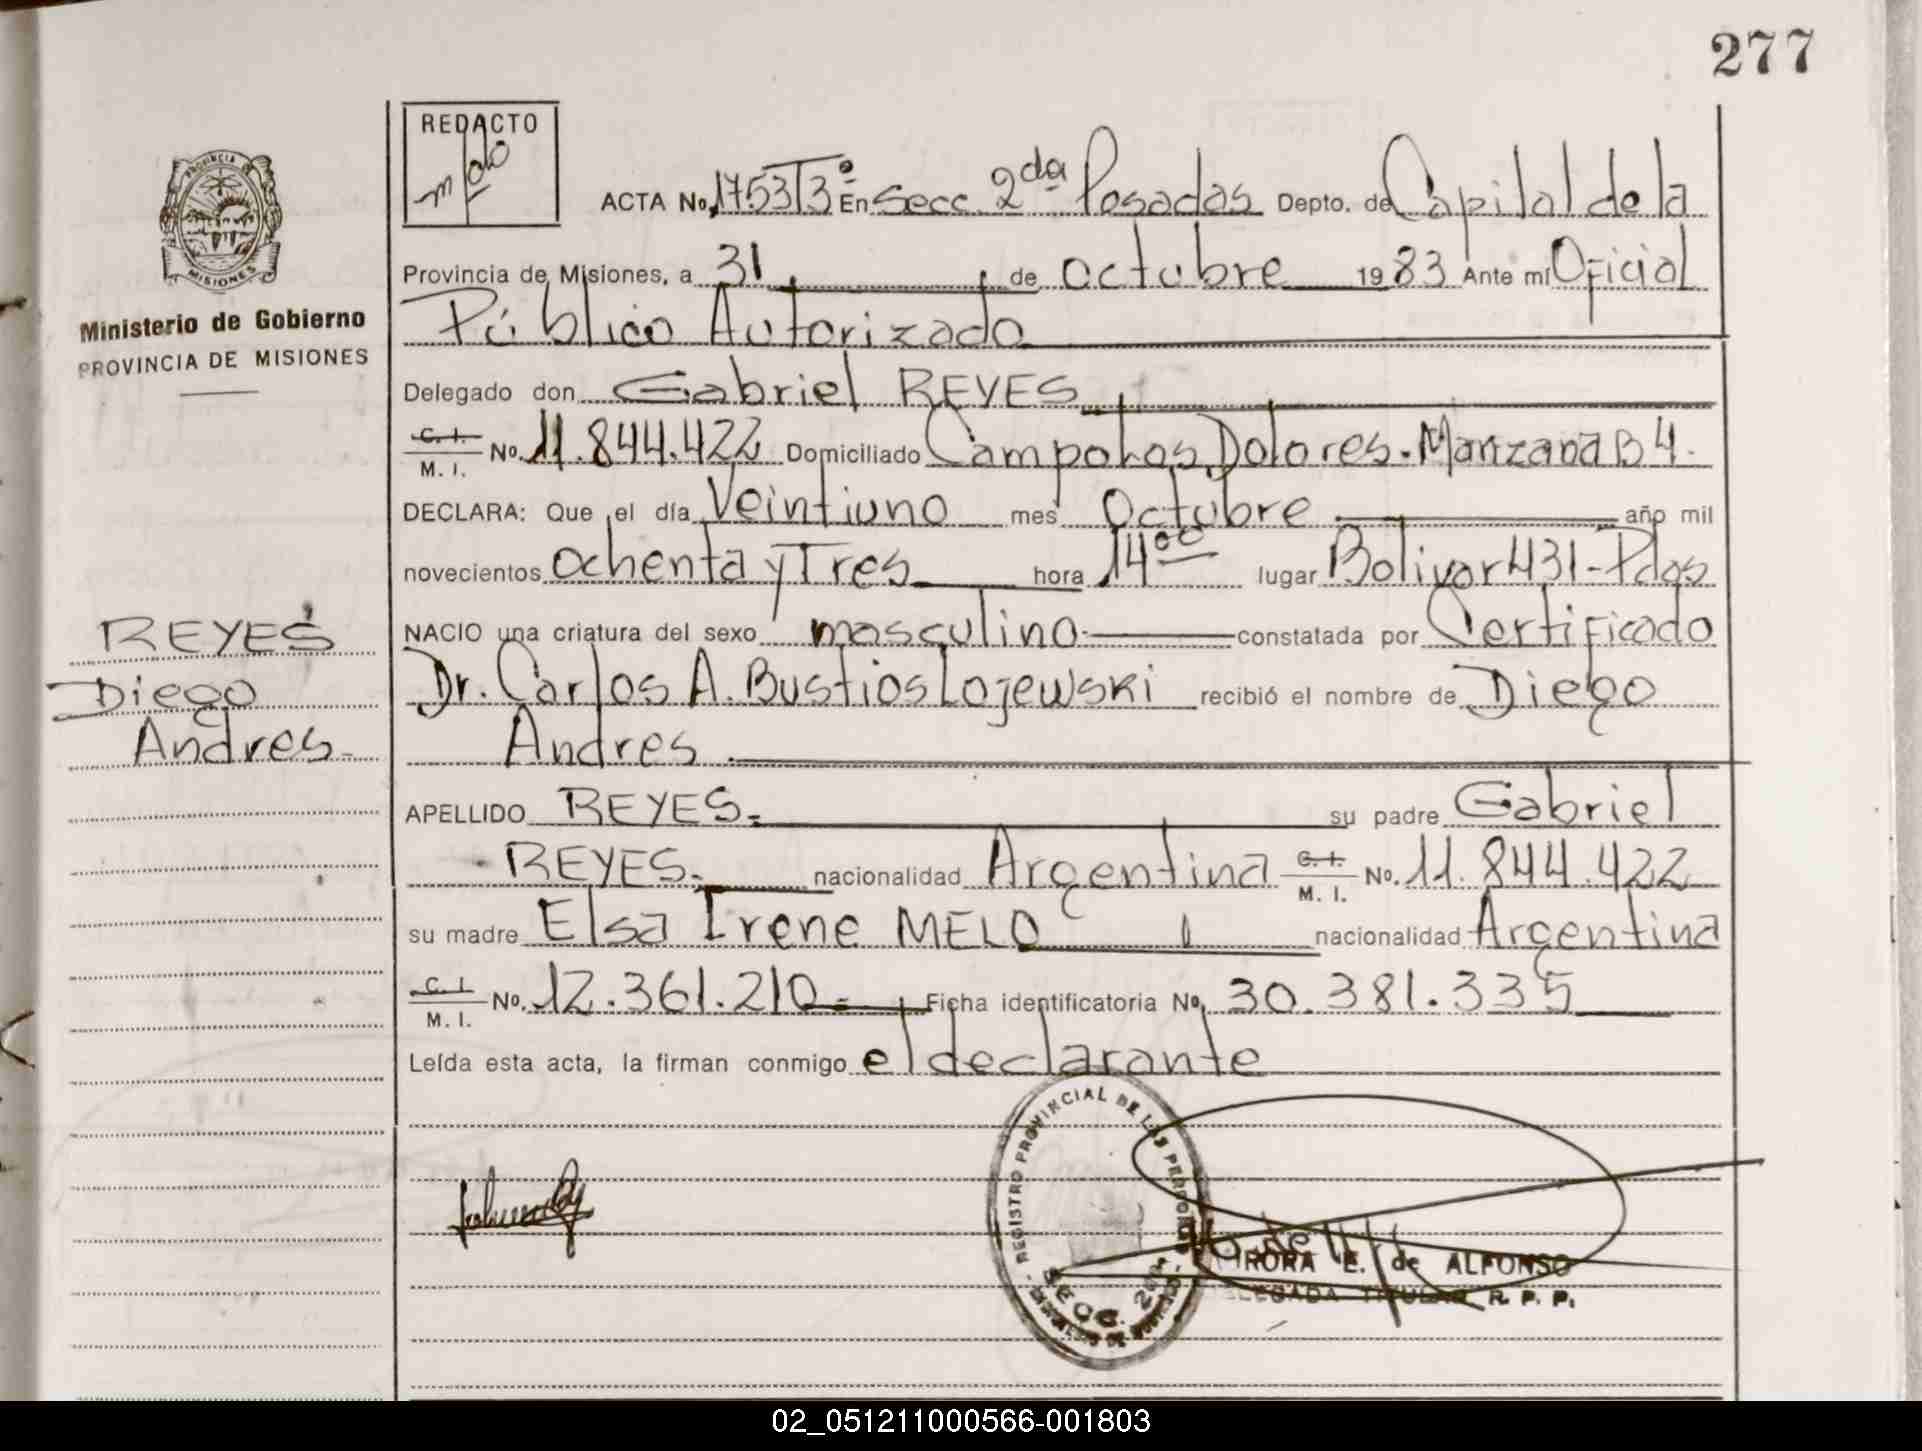 277
REDACTO
PROVINCIA DE
MISIONES
Ministerio de Gobierno
PROVINCIA DE MISIONES
ACTA No. 1753 T3º En Secc. 2da Posadas Depto. de Capital de la
Provincia de Misiones, a 31 de octubre 1983 Ante mí Oficial
Público Autorizado
Delegado don Gabriel REYES
C. I.
M. I. No. 11.844.422 Domiciliado Dolores. Manzana B 4.
DECLARA: Que el día Veintiuno mes Octubre año mil
novecientos ochenta y Tres hora 14 00 lugar Bolivar 431-Pdas
NACIO una criatura del sexo masculino constatada por Certificado
Dr. Carlos A. Bustios Lojewski recibió el nombre de Diego
Andres
APELLIDO REYES.= su padre Gabriel
REYES.- nacionalidad Argentina C. I. M. I. No. 11.844.422
su madre Elsa Irene MELO nacionalidad Argentina
C. I.
M. I. No. 12.361.210= Ficha identificatoria No. 30.381.335
Leída esta acta, la firman conmigo el declarante
REYES
Diego
Andres-
REGISTRO PROVINCIAL DE LAS PERSONAS
SECC. 2da
E. de ALFONSO
DELEGADA TITULAR R. P. P.
02_051211000566-001803